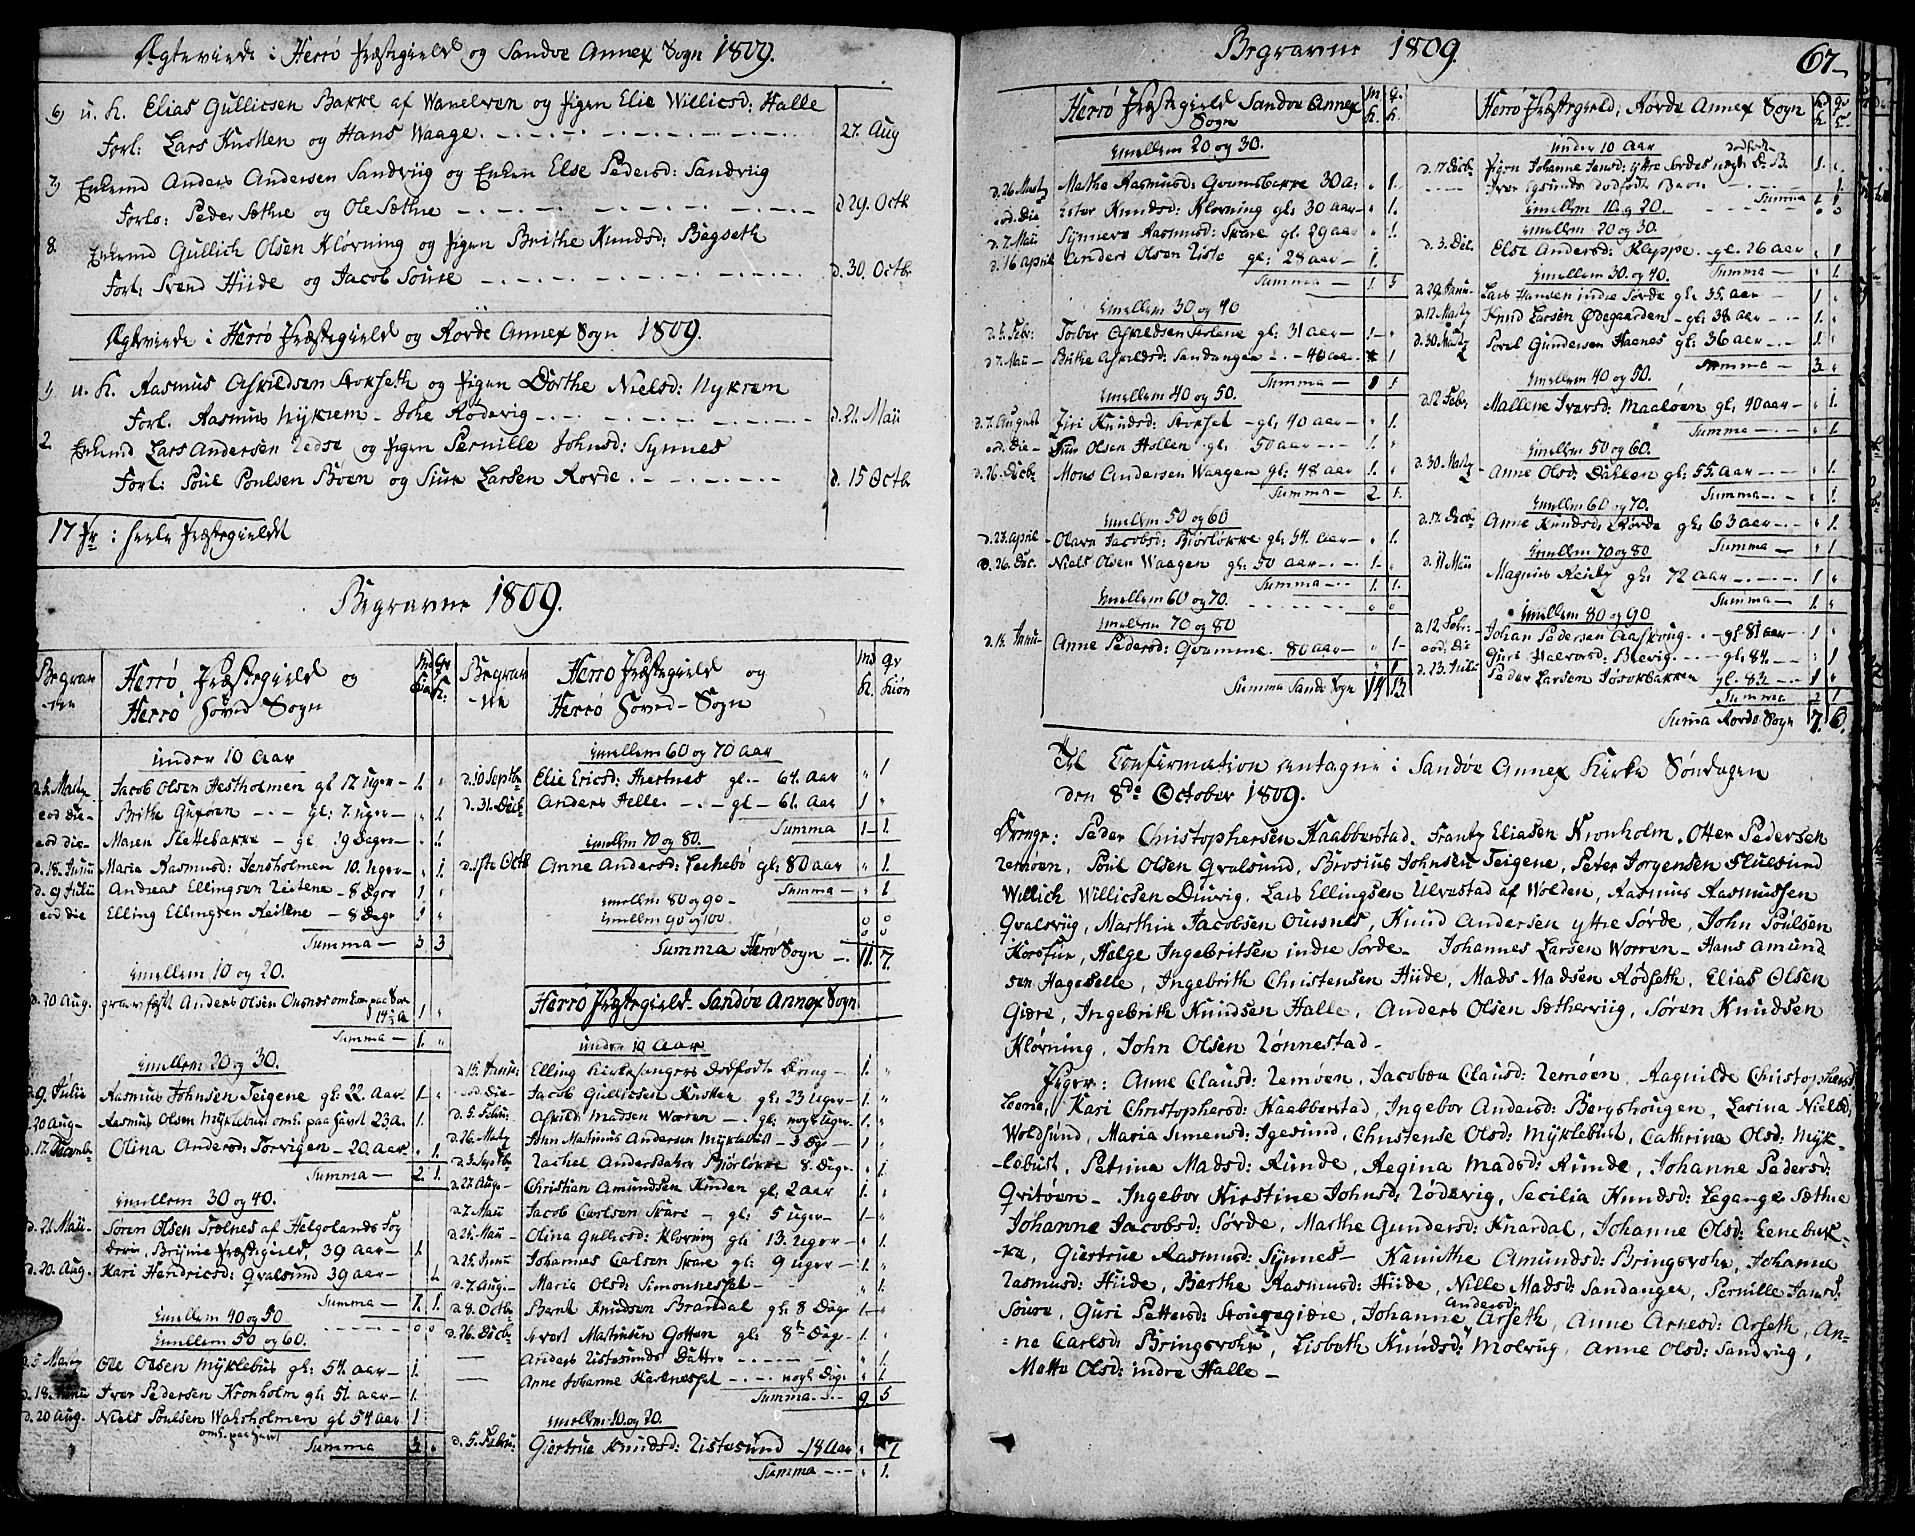 Ægteviede i Herrø Præstegield og Sandøe Annex Sogn 1809.
6) u. K. Elias Gullicsen Bakke af Wanelven og Pigen Elie Willicsd: Halle
Forl: Lars Knotten og Hans Waage. 27. Aug
7) Enkemd Anders Andersen Sandviig og Enken Else Pedersd: Sandviig
Forlo: Peder Sæthre og Ole Sæthre d. 29. Octb
8. Enkemd Gullich Olsen Kløvning og Pigen Brithe Knudsd: Bøgseth
Forl: Svend Hiide og Jacob Soure d. 30. Octbr
Ægteviede i Herrø Præstegield og Rørde Annex Sogn 1809.
1) u. K. Rasmus Askildsen Storseth og Pigen Dorthe Nielsd: Nykrem
Forl. Rasmus Nykrem - Johe Rødevig d. 21. Maii
2 Enkemd Lars Andersen og Pigen Pernille Johnsd: Synnes
Forl: Poul Poulsen Boen og Siur Larsen Rørde d. 15 Octbr
17 Pr: heele Præstegieldet
Begravne 1809.
Begrav
-ne
Herrø Præstegield og
Herrø Hoved Sogn
under 10 Aar
d. 5. Marty Jacob Olsen Hestholmen gl 12 uger 1.
eod die Brithe Gurøen gl: 7. uger 1.
eod die Maren Flettebakke gl 9 Dage 1.
d. 18. Junii Maria Rasmusd: Jensholmen 10. uger 1.
d. 9 Julii Andreas Ellingsen Ristene 8 Dage 1
eod die Elling Ellingsen 8 Dage 1
Summa 3. 3
imellem 10 og 20.
d. 20 Aug. Anders Olsen
14½ A 1
Summa 1.
imellem 20 og 30.
d. 9. Julii Rasmus Johnsen Teigene gl: 22. Aar 1.
20 Aug Rasmus Olsen Myklebust omk: paa havet 23 A. 1.
d. 17. Decemb Olina Andersd: Torvigen 20 aar 1.
Summa 2 1.
imellem 30 og 40.
d. 21. Maii Søren Olsen Trælnes af Helgelands Fog
derie, Brynie Præstegield, 39 aar 1.
d. 20. Aug. Kari Hendricsd: Qvalsund 39 aar 1
Summa 1.
imellem 40 og 50 0 0
imellem 50 og 60.
d. 5 Marty Ole Olsen Myklebust gl: 54. aar 1.
d. 18. Junii Iver Pedersen Kronholm gl: 51. aar 1.
d. 20 Aug. Niels Poulsen Waksholmen gl 54 aar 1
omk. paa havet
Summa 3
Begrav
-ne
Herrø Præstegield og
Herrø Hoved-Sogn
imellem 60 og 70 Aar
d. 10 Septbr Elie Ericsd: gl. 64. Aar 1
d. 31. Decb Anders Telle gl 61. Aar 1
Summa 1 1.
imellem 70 og 80.
d. 1ste Octb Anne Andersd: Leckebø gl: 80 aar 1.
Summa 1
imellem 80 og 90 0 0
imellem 90 og 100. 0 0
Summa Herrø Sogn 11. 7.
Herrø Præstegield. Sandøe Annex Sogn
under 10 Aar
d. 15. Janu: Elling Kirkesangers dødfødte Dreng 1.
eod die Jacob Gullicsen Knotten gl: 23 Uger 1.
d. 5. Febru: Askild Madsen Worren gl: nogle uger 1.
d. 26. Marty John Matinus Andersen Myklebust 3 Dge 1
d. 3. Septb Rachel Andersdatter Biørløkke 8. Dage 1.
d. 27. Aug. Christian Amundsen gl. 2 aar 1.
d. 7. Maii Jacob Carlsen Skare gl: 5 uger 1.
d. 25. Maii Olina Gullicsd: Kløvning gl: 13. Uger 1.
d. 25. Junii Johannes Carlsen Skare gl: 9 uger 1.
d. 7. Aug: Maria Olsd: Simonneset 1.
d. 8. Octb Bernt Knudsen Brandal gl: 8 Dage 1.
d. 26. Decb Sivert Martinsen Gotten gl: 8 Dag 1.
Anders Ristesunds Datter 1.
Anne Johanne nogle Dage 1.
Summa 9. 5
imellem 10. og 20.
d. 5. Febru: Giertrue Knudsd: Ristesund 18 Aar 1
Summa 1.
Begravne 1809. 67.
Herrø Præstegield Sandøe Annex
Sogn
imellem 20 og 30.
d. 26. Marty Mathe Rasmusd: Qvamsbakke 30 A: 1.
eod. Die Ester Knudsd: Kløvning gl: 30 aar 1.
d. 7. Maii Synneve Rasmusd: Skare gl. 29 aar 1.
d. 16 April Anders Olsen Riste gl: 28 aar 1.
Summa 1. 3
imellem 30 og 40
d. 5. Febr: Torber Askildsen gl: 31 aar 1
d. 7. Maii Brithe Askildsd: Sandanger 40 aar 1
Summa 1 1.
imellem 40 og 50.
d. 7. August Siri Knudsd: Storset gl: 40 aar 1.
eod. Die Olsen Hollen gl: 50 aar 1.
d. 26. Decbr Mons Andersen Waagen gl: 48 aar 1.
Summa 2. 1.
imellem 50 og 60
d. 23. April Olava Jacobsd: Biørløkke gl: 54. aar 1.
d. 26. Dec. Niels Olsen Waagen gl: 50 aar 1
Summa 1. 1.
imellem 60 og 70. 0 0
imellem 70 og 80
d. 14. Janu Anne Pedersd: Qvamme. 80 aar 1
1
Summa Sande Sogn 14 13
Herrø Præstegield, Rørde Annex Sogn
under 10 Aar
d. 17. Decb Pigen Johanne Jensd: yttre Sørdes dødfødte 1.
Iver Igsunds dødfødte Barn 1.
Summa 1. 1.
imellem 10. og 20. 0 0
imellem 20 og 30.
d. 3. Dec. Else Andersd: Kleppe gl. 26 aar 1
Summa 1.
imellem 30. og 40.
d. 29. Janu. Lars Hansen indre Sørde gl. 35. aar 1
d. 12. Marty Knud Larsen Ødegaarden gl: 38 aar 1.
d. 30. Marty Poul Gundersen Haanes gl: 36 aar 1
Summa 3.
imellem 40 og 50.
d. 12. Febr: Mallene Iversd: Maaløen gl. 40 aar 1.
Summa 1.
imellem 50 og 60.
d. 30. Marty Anne Olsd: Dukken gl: 55. aar 1.
Summa 1.
imellem 60 og 70.
d. 17. Decb Anne Knudsd: Rørde gl: 63 aar 1.
Summa 1.
imellem 70 og 80
d. 11. Maii Magnus gl: 72 aar 1
Summa 1.
imellem 80 og 90
d. 12. Febr: Johan Pedersen Aaskoug gl 81 aar 1
eod: Die Guri Halvorsd: Blevig gl: 84. 1
d. 23. Julii Peder Larsen Josokbakken gl. 83. 1
Summa 2 1
Suma Rørde Sogn 7. 6.
Til Confirmation antagne i Sandøe Annex Kirke Søndagen
den 8de October 1809.
Drenge: Peder Christophersen Haabberstad, Frantz Eliasen Kronholm, Otter Pedersen
Remøen, Poul Olsen Qvalsund, Brosius Johnsen Teigene, Peter Jørgensen Fluesund
Willich Willicsen Diuvig, Lars Ellingsen Ulvestad af Wolden, Rasmus Rasmussen
Qvalsviig, Marthin Jacobsen Ousnes, Knud Andersen yttre Sørde, John Poulsen
Korsfur, Helge Ingebritsen indre Sørde Johannes Larsen Worren - Hans Amund
sen Hageselle, Ingebrith Christensen Hiide, Mads Madsen Rødseth, Elias Olsen
Giære, Ingebrith Knudsen Halle, Anders Olsen Sætherviig, Søren Knudsen
Kløvning, John Olsen Rønnestad.
Piger: Anne Clausd: Remøen, Jacobea Clausd: Remøen, Ragnilde Christophersd:
Leene, Kari Christophersd: Haabberstad, Ingebor Andersd: Bergshougen, Larina Nielsd:
Woldsund, Maria Simensd: Igesund, Christense Olsd: Myklebust, Cathrina Olsd: Myk-
-lebust, Petrina Madsd: Runde, Regina Madsd: Runde, Johanne Pedersd:
Qvitøen - Ingebor Kirstine Johnsd: Rødevig, Cecilia Knudsd: Legange Sæthre
Johanne Jacobsd: Sørde, Marthe Gundersd: Knardal, Johanne Olsd: Lenebak-
-ka, Giertrue Rasmusd: Synnes - Kanithe Amundsd: Bringsvohr, Johanne
Rasmusd: Hiide, Berthe Rasmusd: Hiide, Nille Madsd: Sandanger, Pernille Jansd:
Soure, Guri Pettersd: Stouregiære, Johanne Andersd: Arseth, Anne Arnesd: Arseth, An-
=ne Carlsd: Bringsvohr, Lisbeth Knudsd: Molvig, Anne Olsd: Sandvig,
Matte Olsd: indre Halle -